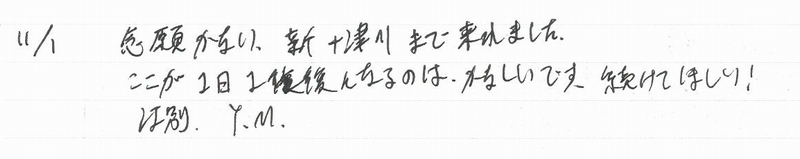 11/1 念願かない、新十津川まで来れました。
ここが1日1往復になるのは、かなしいです 続けてほしい！
江別. Y.M.